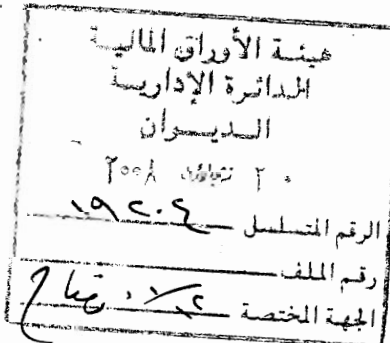 هيئة الأوراق المالية
الدائرة الإدارية
الديوان
٢٠٠٨
الرقم المتسلسل ١٩٢٠٤
رقم الملف
الجهة المختصة